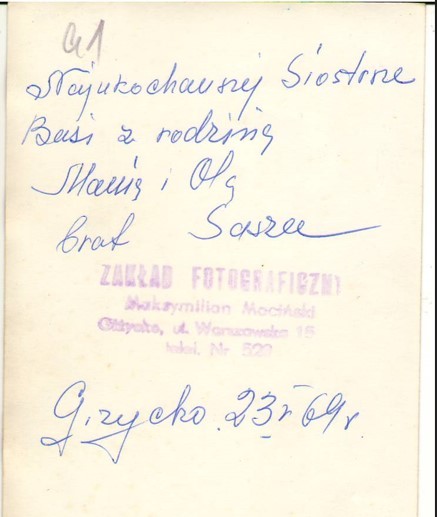 G1
Najukochanszej Siostrze
Basi z rodziną
Manią i Olą
brat Sasza
ZAKŁAD FOTOGRAFICZNY
Maksymilian Maciński
Giżycko, ul. Warszawska 15
telef. Nr 529
Giżycko 23 V 69 r